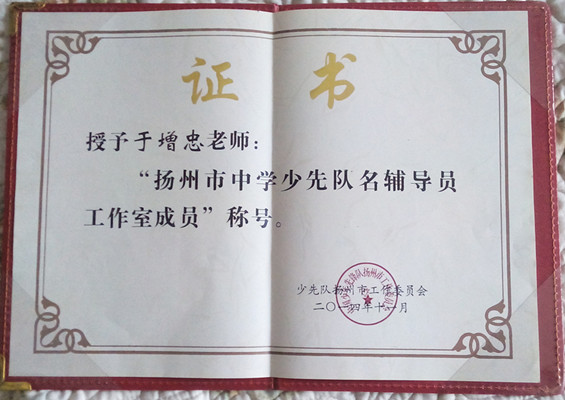 证书
授予于增忠老师：
“扬州市中学少先队名辅导员
工作室成员”称号。
少先队扬州市工作委员会
二〇一四年十一月